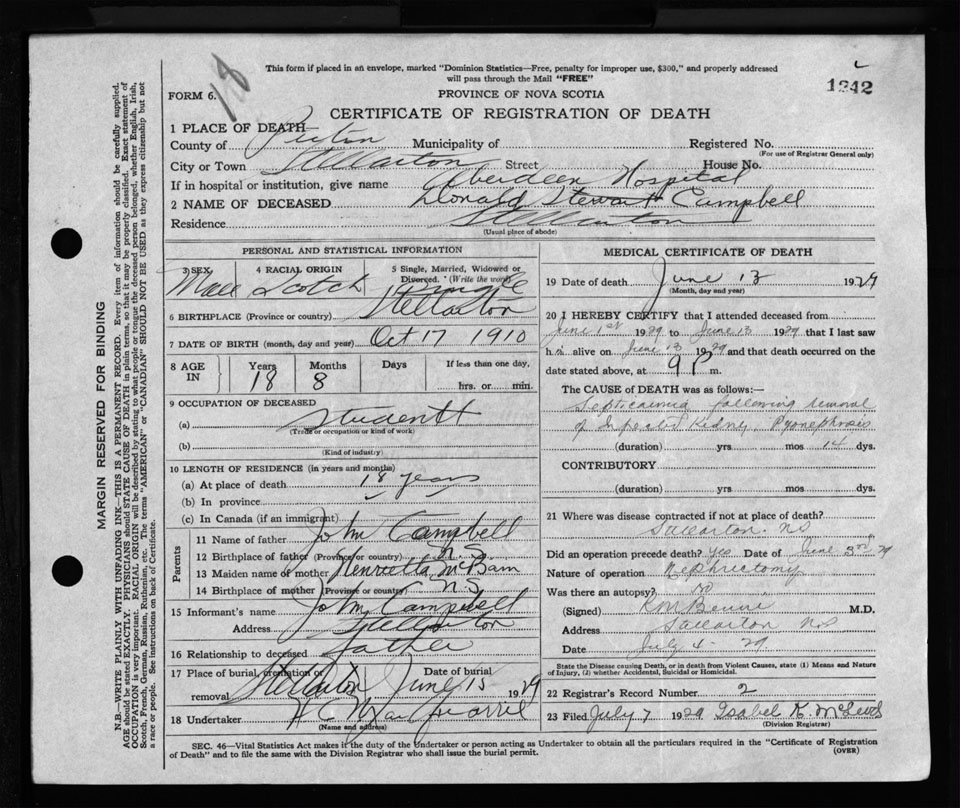 This form if placed in an envelope, marked "Dominion Statistics—Free, penalty for improper use, $300," and properly addressed
will pass through the Mail "FREE"
18
1242
FORM 6.
PROVINCE OF NOVA SCOTIA
CERTIFICATE OF REGISTRATION OF DEATH
1 PLACE OF DEATH
County of Pictou Municipality of Registered No.
(For use of Registrar General only)
City or Town Stellarton Street House No.
If in hospital or institution, give name Aberdeen Hospital
2 NAME OF DECEASED Donald Stewart Campbell
Residence Stellarton
(Usual place of abode)
PERSONAL AND STATISTICAL INFORMATION
3 SEX Male
4 RACIAL ORIGIN Scotch
5 Single, Married, Widowed or Divorced. (Write the word) Single
6 BIRTHPLACE (Province or country) Stellarton
7 DATE OF BIRTH (month, day and year) Oct 17 1910
8 AGE IN Years 18 Months 8 Days If less than one day, hrs. or min.
9 OCCUPATION OF DECEASED
(a) Student
(Trade or occupation or kind of work)
(b)
(Kind of industry)
10 LENGTH OF RESIDENCE (in years and months)
(a) At place of death 18 years
(b) In province
(c) In Canada (if an immigrant)
Parents
11 Name of father John Campbell
12 Birthplace of father (Province or country) N S
13 Maiden name of mother Henrietta
14 Birthplace of mother (Province or country) N S
15 Informant's name John Campbell
Address Stellarton
16 Relationship to deceased father
17 Place of burial, cremation or removal Stellarton Date of burial June 15 1929
18 Undertaker
(Name and address)
MEDICAL CERTIFICATE OF DEATH
19 Date of death June 13 1929
(Month, day and year)
20 I HEREBY CERTIFY that I attended deceased from
June 1st 1929 to June 13 1929 that I last saw
him alive on June 13 1929 and that death occurred on the
date stated above, at 9 P m.
The CAUSE of DEATH was as follows:
Septicaemia following removal
of Infected Kidney Pyonephrosis
(duration) yrs mos 14 dys.
CONTRIBUTORY
(duration) yrs mos dys.
21 Where was disease contracted if not at place of death?
Stellarton. NS
Did an operation precede death? yes Date of June 3rd 29
Nature of operation Nephrectomy
Was there an autopsy? No
(Signed) M.D.
Address Stellarton NS
Date July 4 - 29
State the Disease causing Death, or in death from Violent Causes, state (1) Means and Nature
of Injury, (2) whether Accidental, Suicidal or Homicidal.
22 Registrar's Record Number 2
23 Filed July 7 1929 Isabel K.
(Division Registrar)
SEC. 46—Vital Statistics Act makes it the duty of the Undertaker or person acting as Undertaker to obtain all the particulars required in the "Certificate of Registration
of Death" and to file the same with the Division Registrar who shall issue the burial permit.
(OVER)
MARGIN RESERVED FOR BINDING
N.B.—WRITE PLAINLY WITH UNFADING INK—THIS IS A PERMANENT RECORD. Every item of information should be carefully supplied.
AGE should be stated EXACTLY. PHYSICIANS should STATE CAUSE OF DEATH in plain terms so that it may be properly classified. Exact statement of
OCCUPATION is very important. RACIAL ORIGIN will be described by stating to what people or tongue the deceased person belonged, whether English, Irish,
Scotch, French, German, Russian, Ruthenian, etc. The terms "AMERICAN" or "CANADIAN" SHOULD NOT BE USED as they express citizenship but not
a race or people. See instructions on back of Certificate.